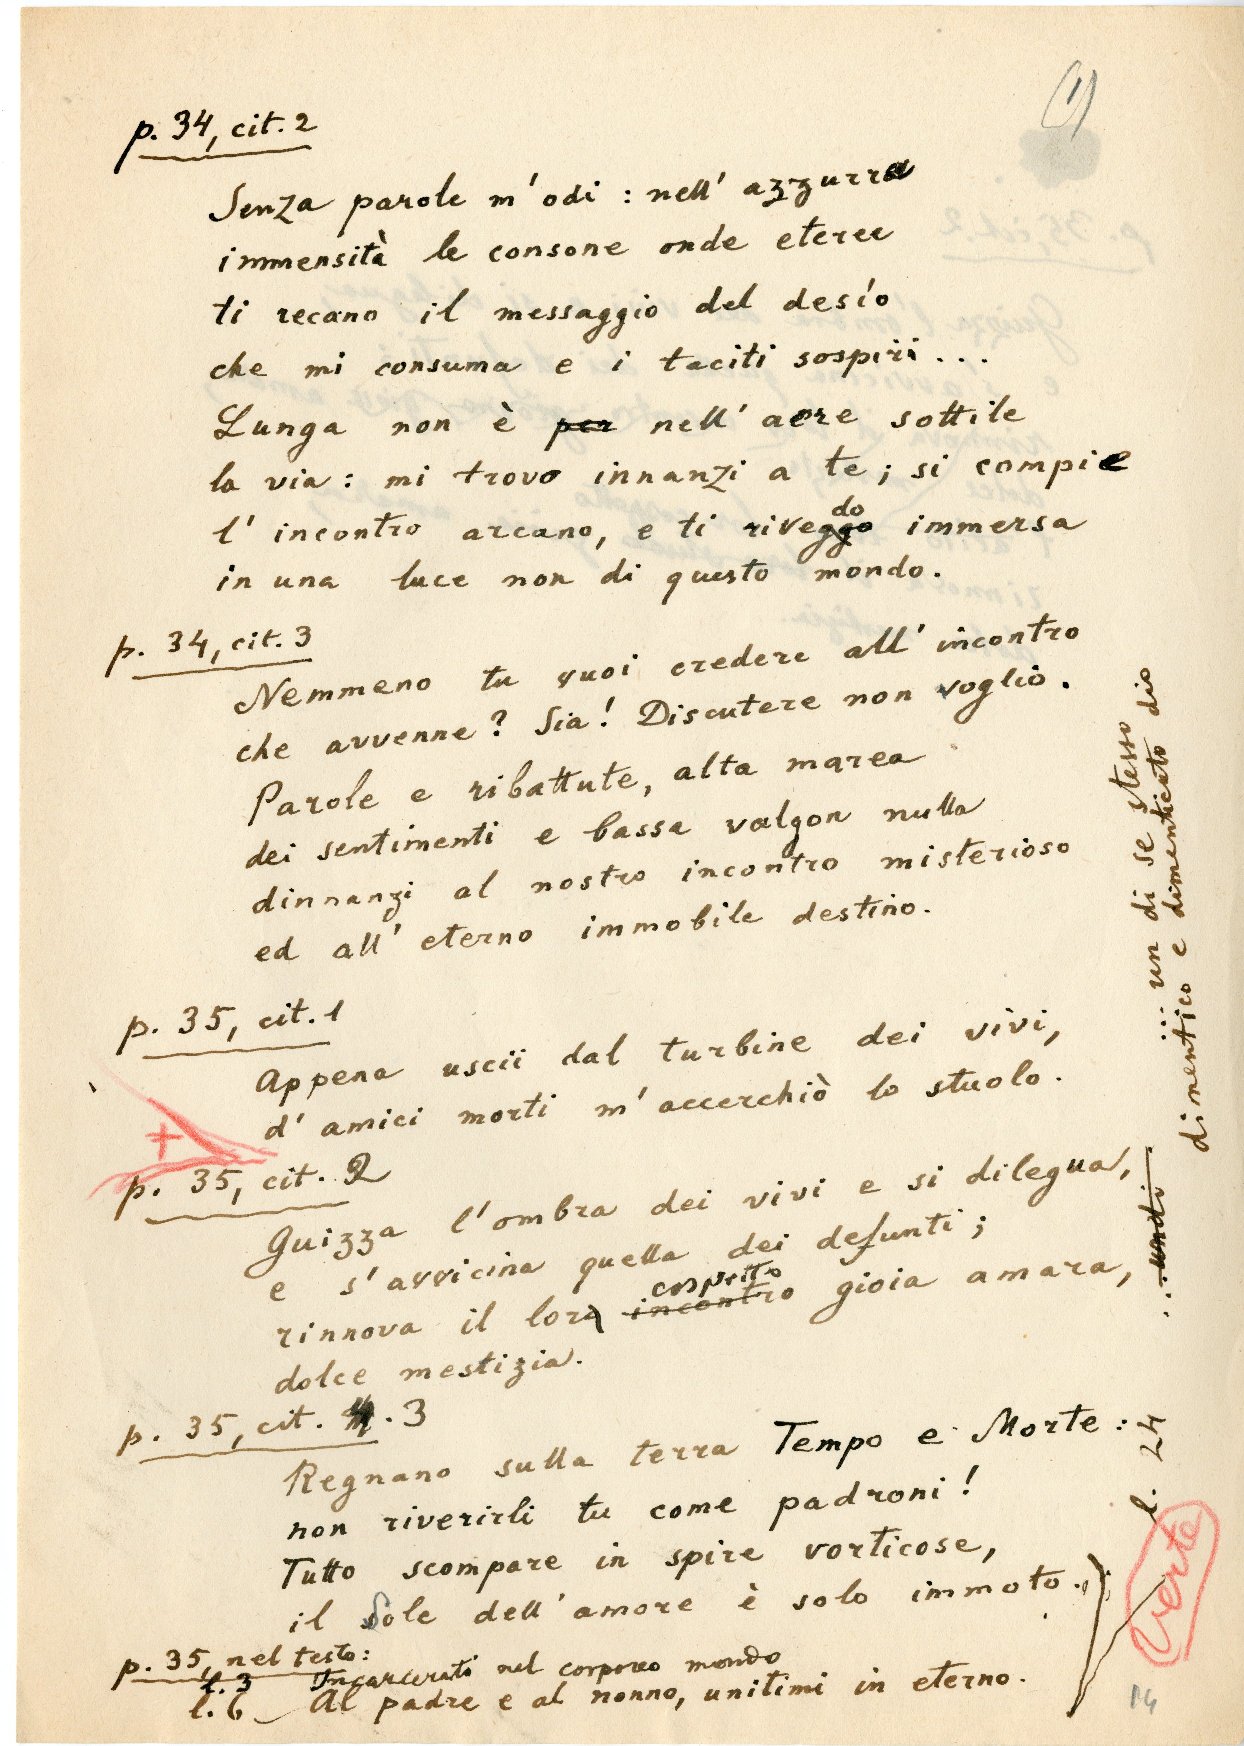 1)
p. 34, cit. 2
Senza parole m'odi: nell'azzurra
immensità le consone onde eteree
ti recano il messaggio del desìo
che mi consuma e i taciti sospiri...
Lunga non è per nell'aere sottile
la via: mi trovo innanzi a te; si compie
do
l'incontro arcano, e ti riveggo immersa
in una luce non di questo mondo.
p. 34, cit. 3
Nemmeno tu vuoi credere all'incontro
che avvenne? Sia! Discutere non voglio.
Parole e ribattute, alta marea
dei sentimenti e bassa valgon nulla
dinnanzi al nostro incontro misterioso
ed all'eterno immobile destino.
p. 35, cit. 1
Appena uscii dal turbine dei vivi,
d'amici morti m'accerchiò lo stuolo.
+
p. 35, cit. 2
Guizza l'ombra dei vivi e si dilegua,
e s'avvicina quella dei defunti;
cospetto
rinnova il lor incontro gioia amara,
dolce mestizia.
p. 35, cit. 3
Regnano sulla terra Tempo e Morte:
non riverirli tu come padroni!
Tutto scompare in spire vorticose,
il Sole dell'amore è solo immoto.
p. 35, nel testo:
l. 3 Incarcerati nel corporeo mondo
l. 6 Al padre e al nonno, unitimi in eterno.
l. 24 ... undi ... un di se stesso
dimentico e dimenticato dio
verte
14